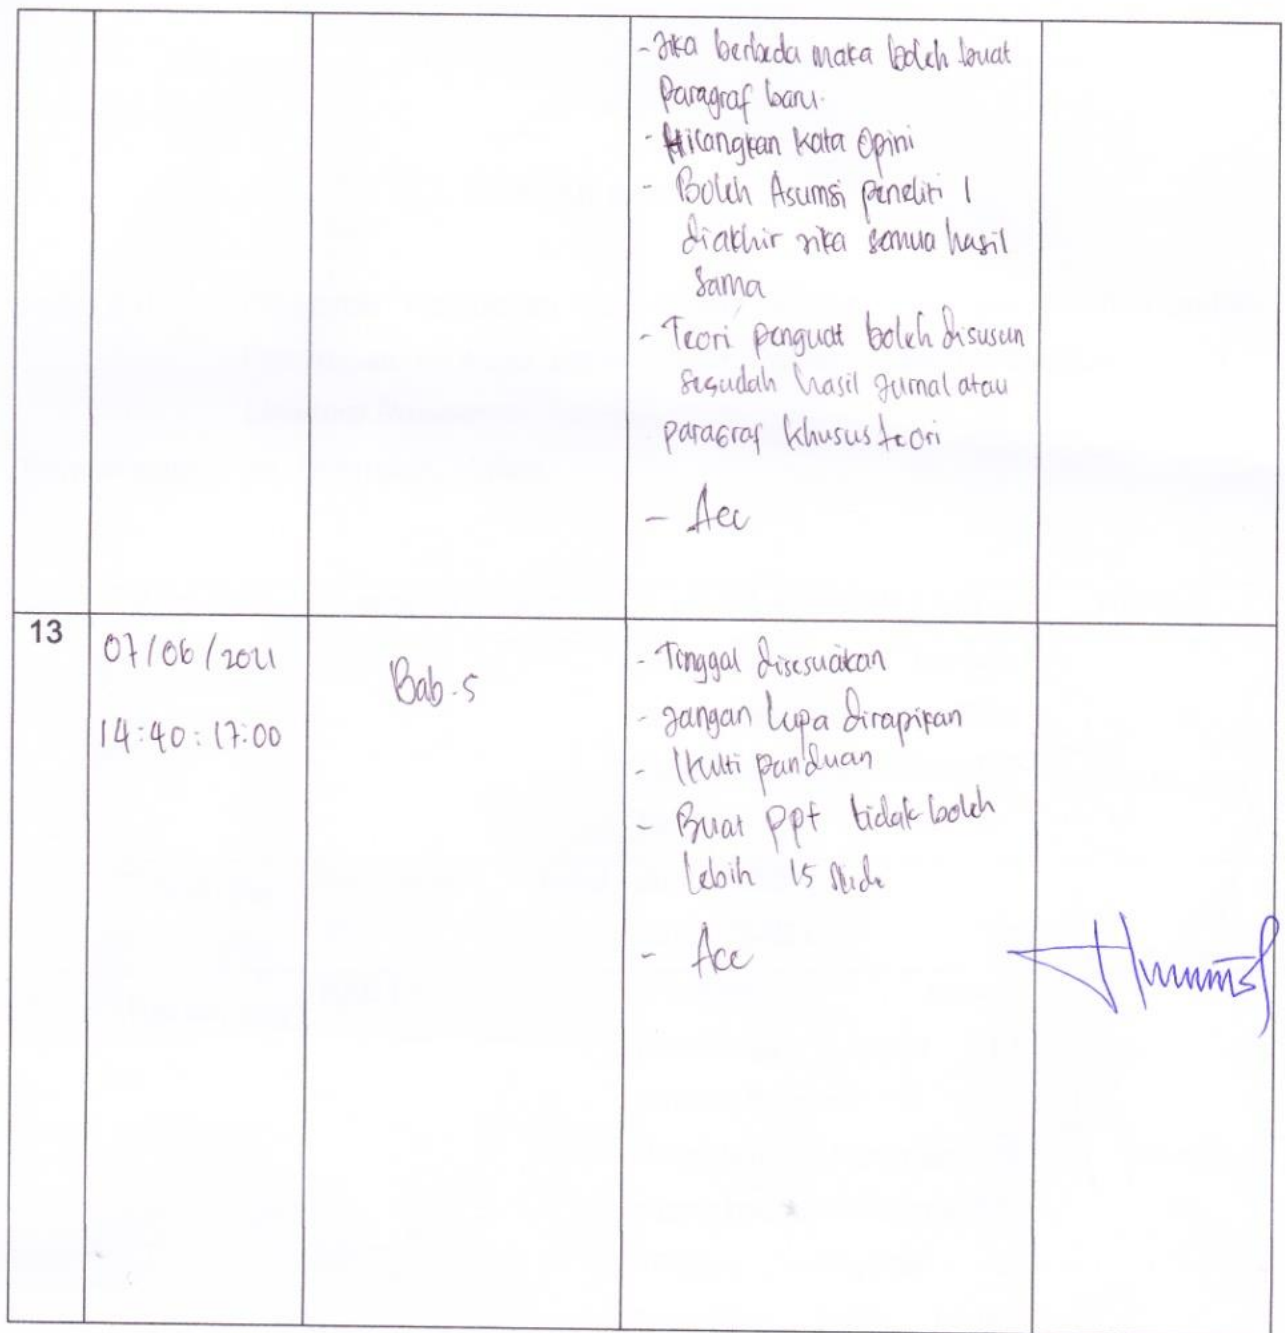 - Jika berbeda maka boleh buat
Paragraf baru.
- Hilangkan Kata Opini
- Boleh Asumsi peneliti 1
diakhir jika semua hasil
sama
- Teori penguat boleh disusun
sesudah hasil jurnal atau
paragraf khusus teori
- Acc
13
07/06/2021
14:40:17:00
Bab.5
- Tinggal disesuaikan
- Jangan lupa dirapikan
- Ikuti panduan
- Buat ppt tidak boleh
lebih 15 slide
- Acc